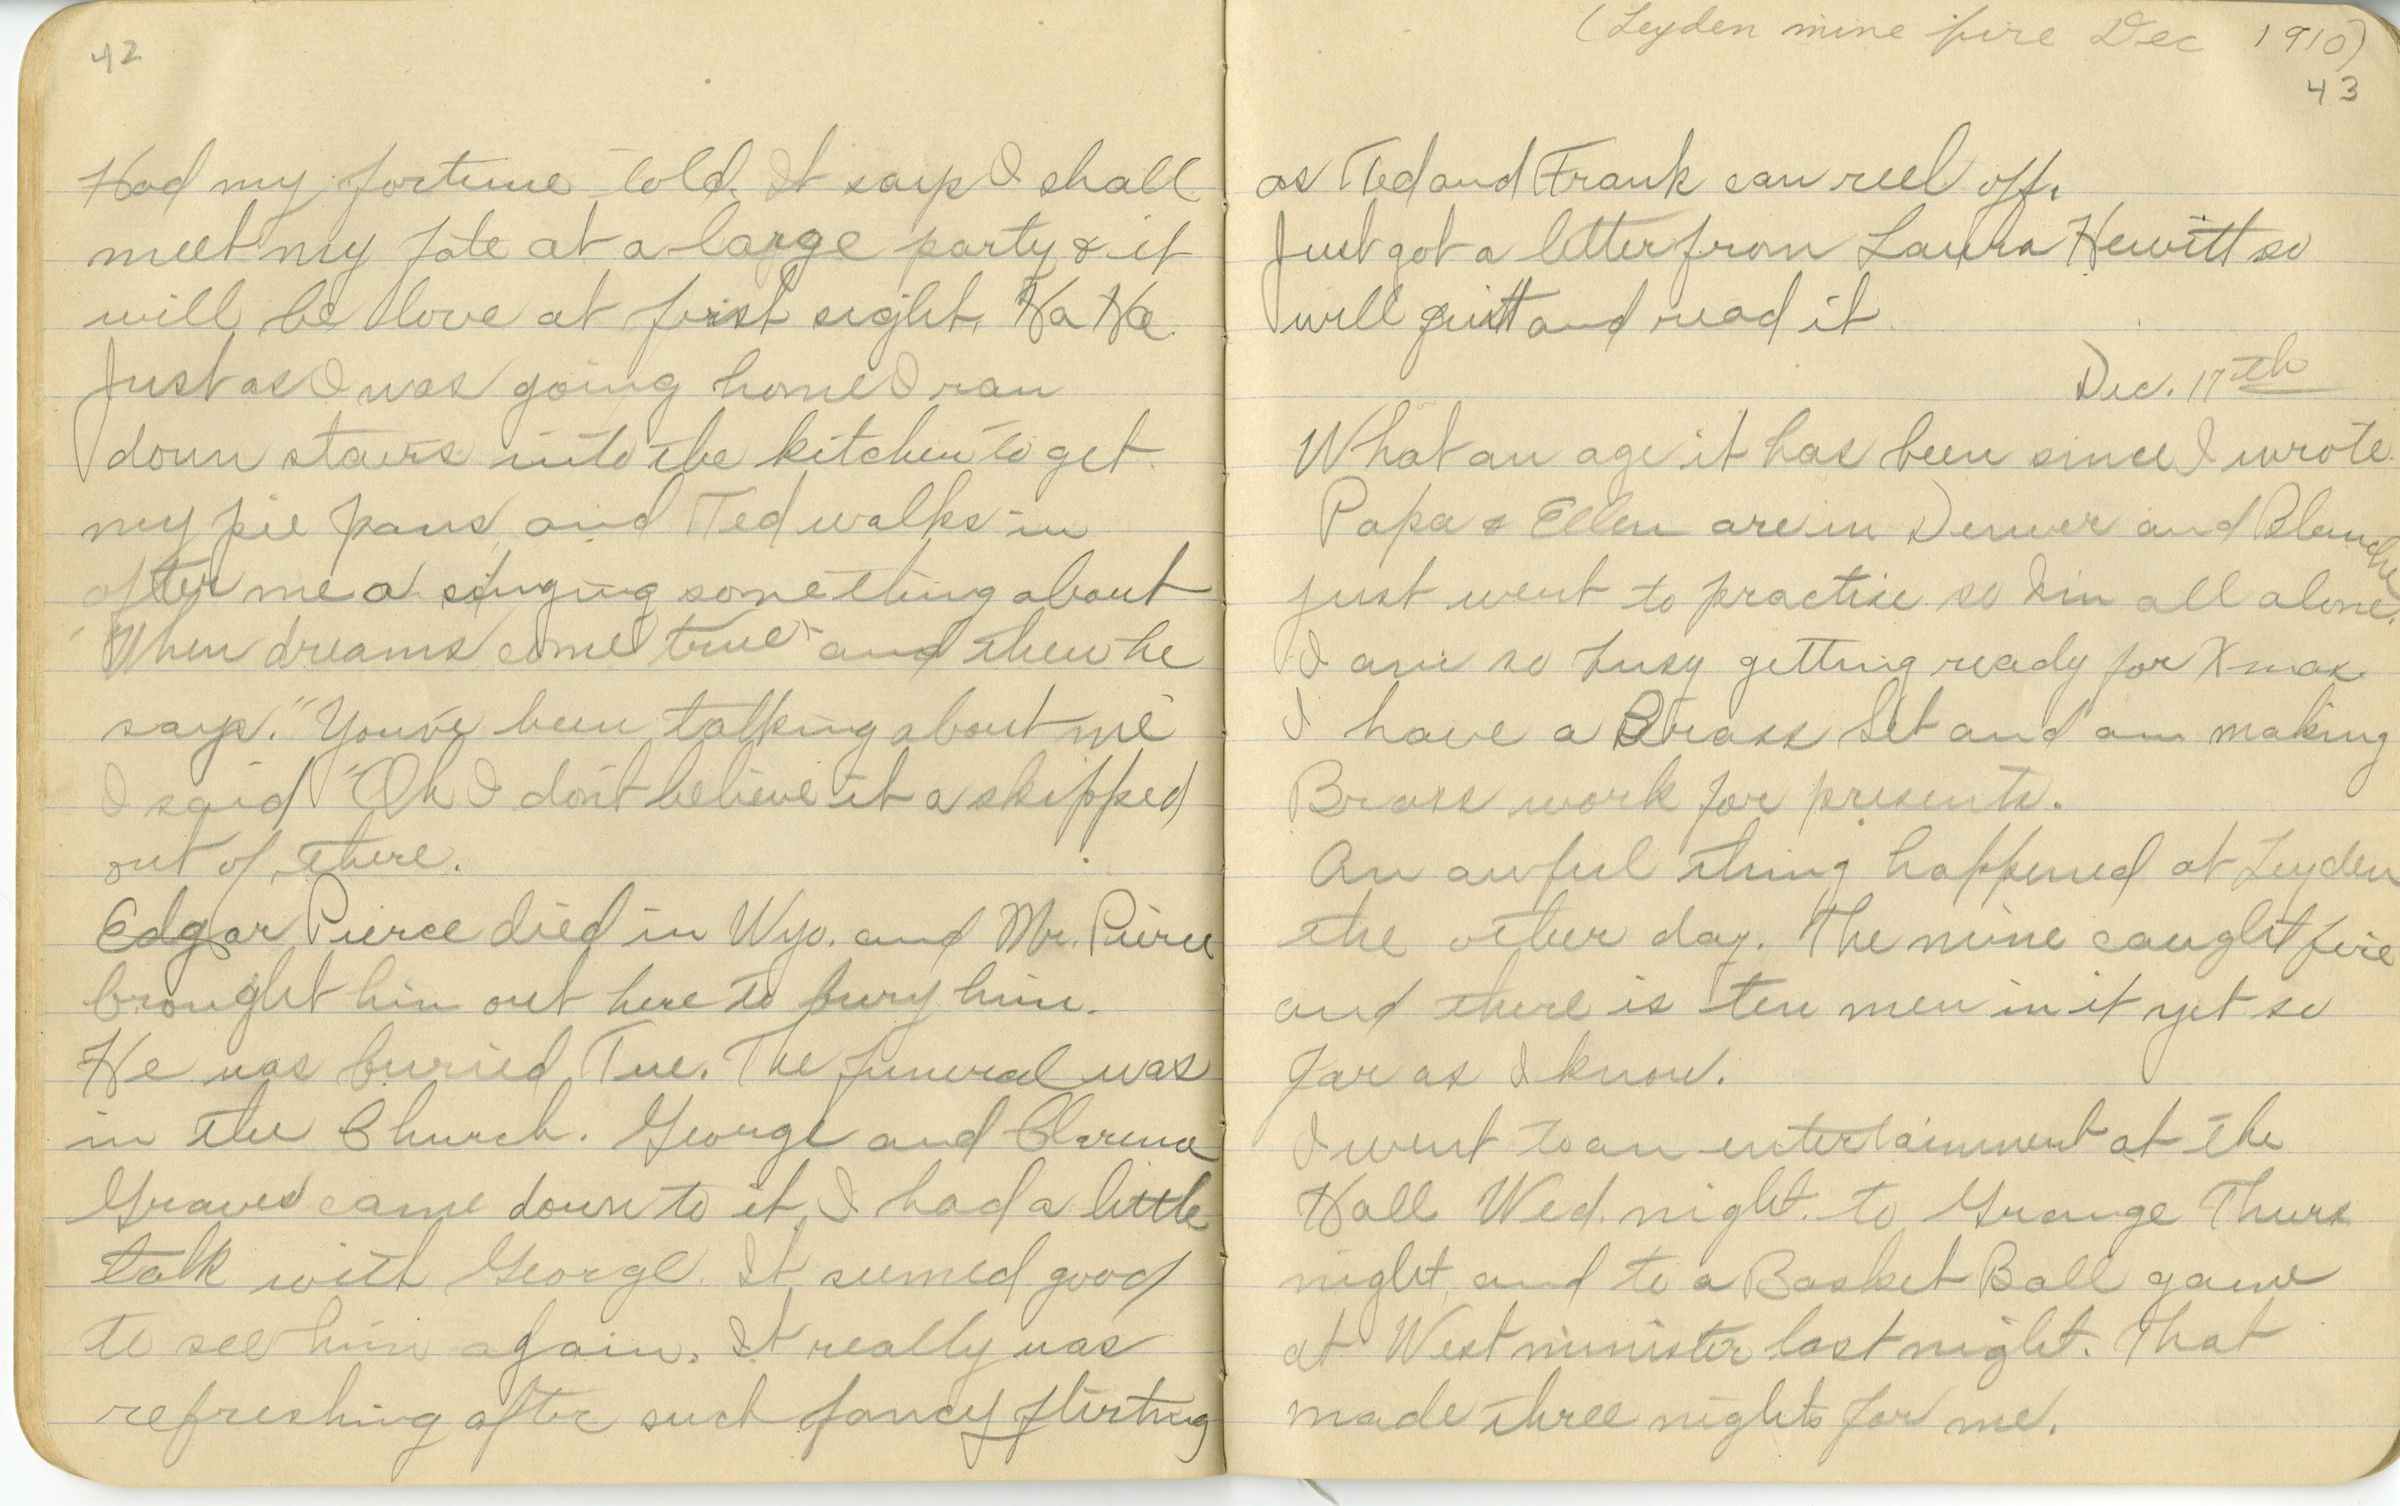 42
Had my fortune told. It says I shall
meet my fate at a large party & it
will be love at first sight. Ha Ha.
Just as I was going home I ran
down stairs into the kitchen to get
my pie pans, and Ted walks in
after me a singing something about
"When dreams come true" and then he
says. "You've been talking about me"
I said "Oh I don't believe it a skipped
out of there.
Edgar Pierce died in Wyo. and Mr. Pierce
brought him out here to bury him.
He was buried Tue. The funeral was
in the Church. George and Clarence
Graves came down to it. I had a little
talk with George. It seemed good
to see him again. It really was
refreshing after such fancy flirting
(Leyden mine fire Dec 1910)
43
as Ted and Frank can reel off.
Just got a letter from Laura Hewitt so
will quitt and read it.
Dec. 17th
What an age it has been since I wrote.
Papa & Ellen are in Denver and Blanche
just went to practise so Im all alone.
I am so busy getting ready for Xmas.
I have a Brass Set and am making
Brass work for presents.
An awful thing happened at Leyden
the other day. The mine caught fire
and there is ten men in it yet so
far as I know.
I went to an entertainment at the
Hall Wed. night. to Grange Thurs
night, and to a Basket Ball game
at Westminister last night. That
made three nights for me.